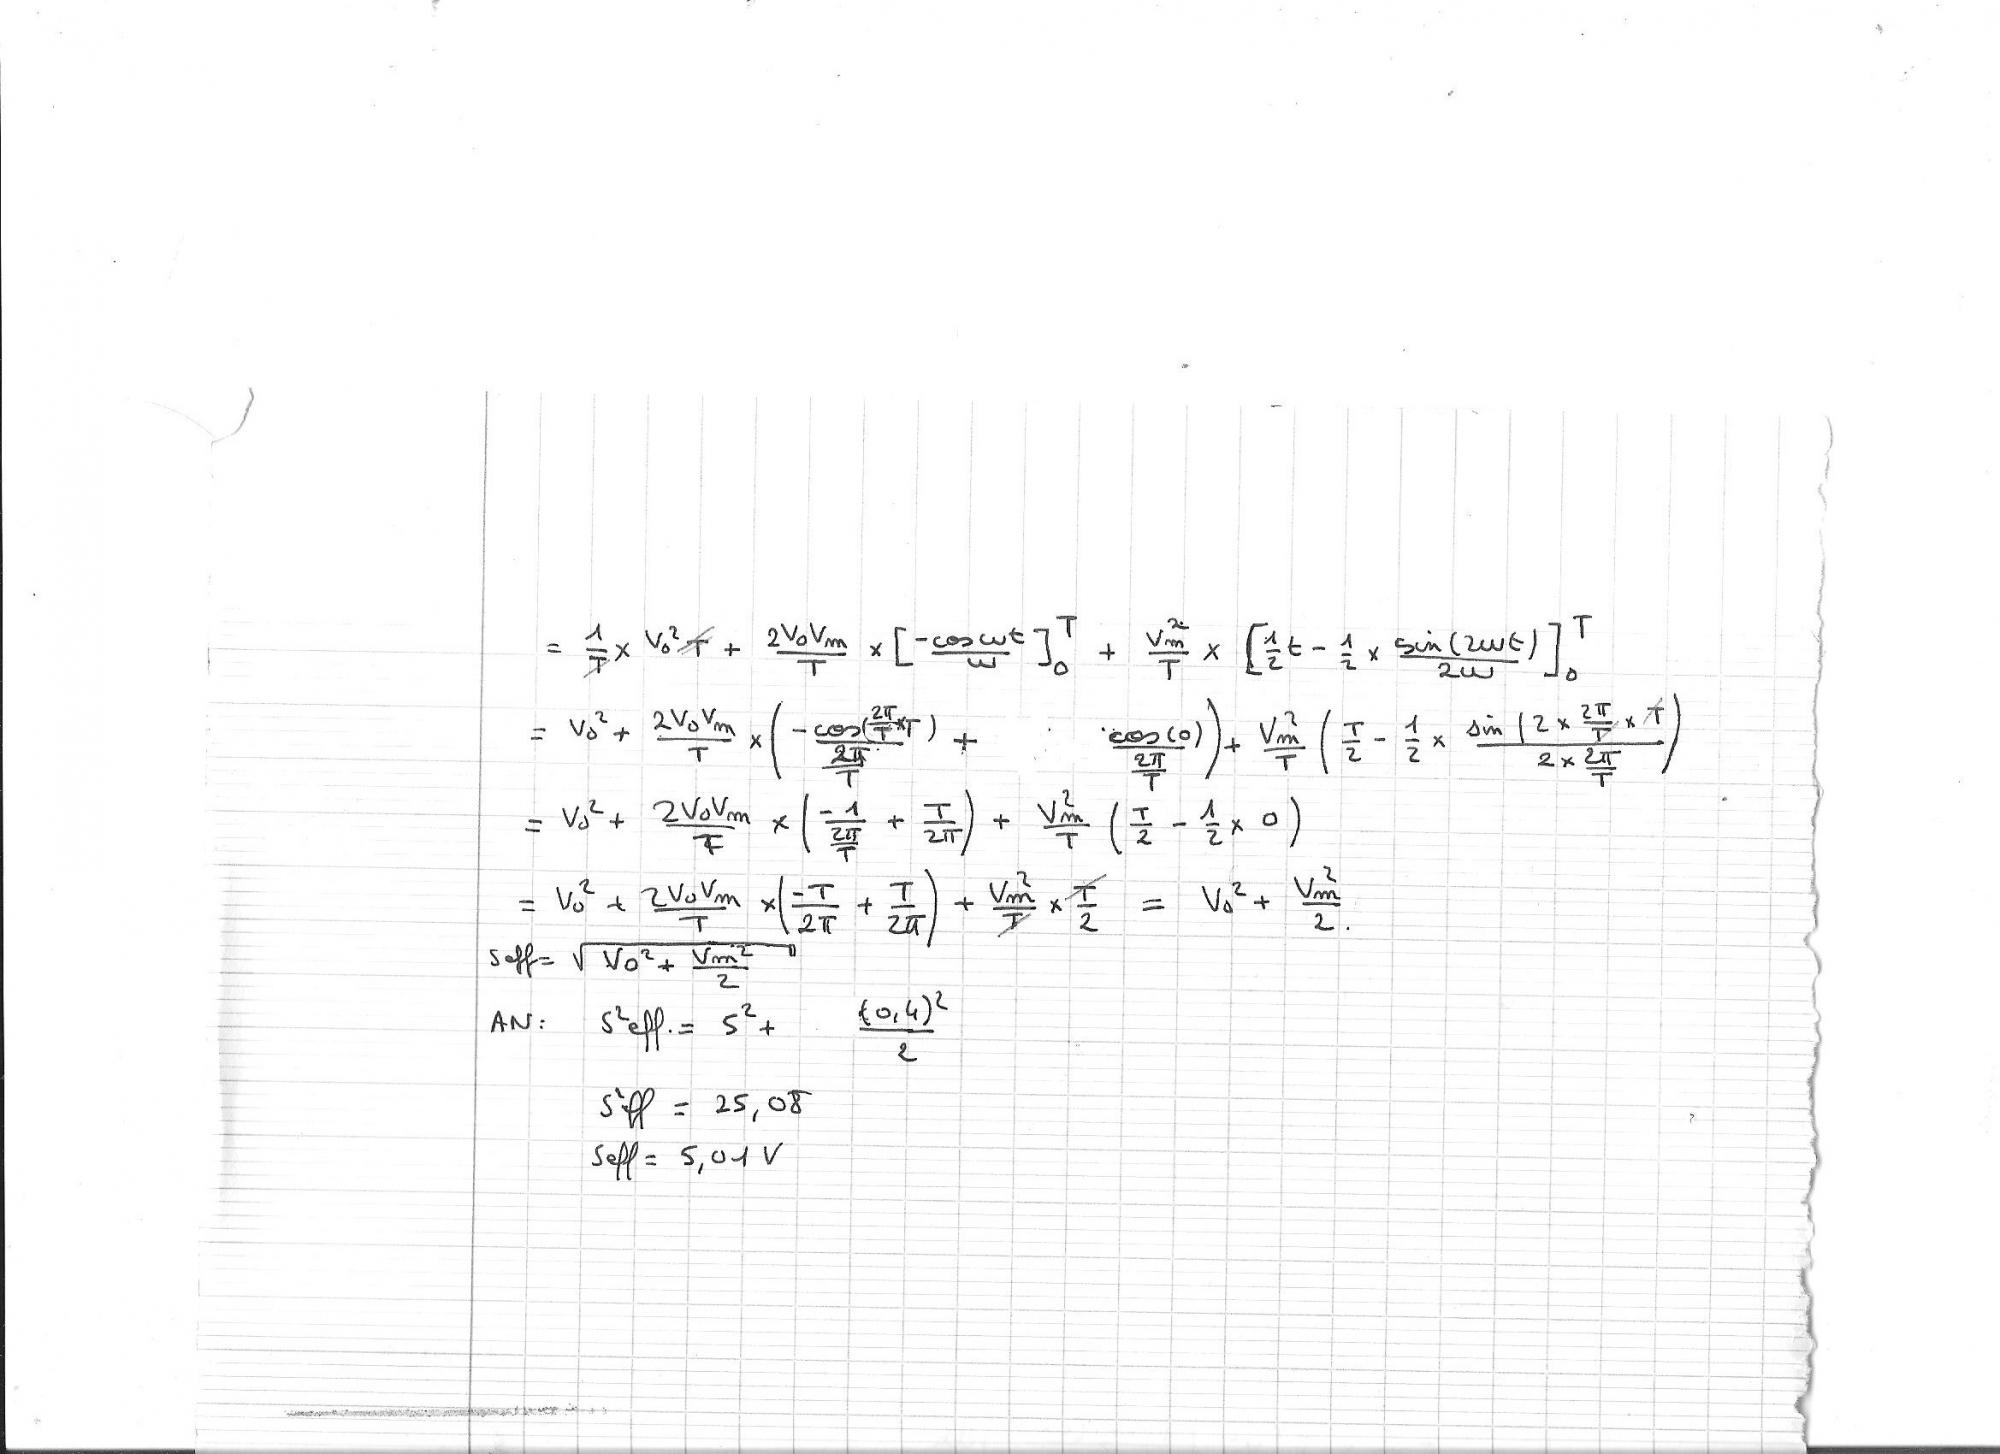 = 1/T × V₀² T + 2V₀Vm/T × [-cos ωt / ω]₀ᵀ + Vm²/T × [1/2 t - 1/2 × sin(2ωt)/2ω]₀ᵀ
= V₀² + 2V₀Vm/T × (-cos(2π/T × T)/(2π/T) + cos(0)/(2π/T)) + Vm²/T (T/2 - 1/2 × sin(2 × 2π/T × T)/(2 × 2π/T))
= V₀² + 2V₀Vm/T × (-1/(2π/T) + T/2π) + Vm²/T (T/2 - 1/2 × 0)
= V₀² + 2V₀Vm/T × (-T/2π + T/2π) + Vm²/T × T/2 = V₀² + Vm²/2.
Seff = √(V₀² + Vm²/2)
AN: S²eff. = 5² + (0,4)²/2
S²eff = 25,08
Seff = 5,01 V